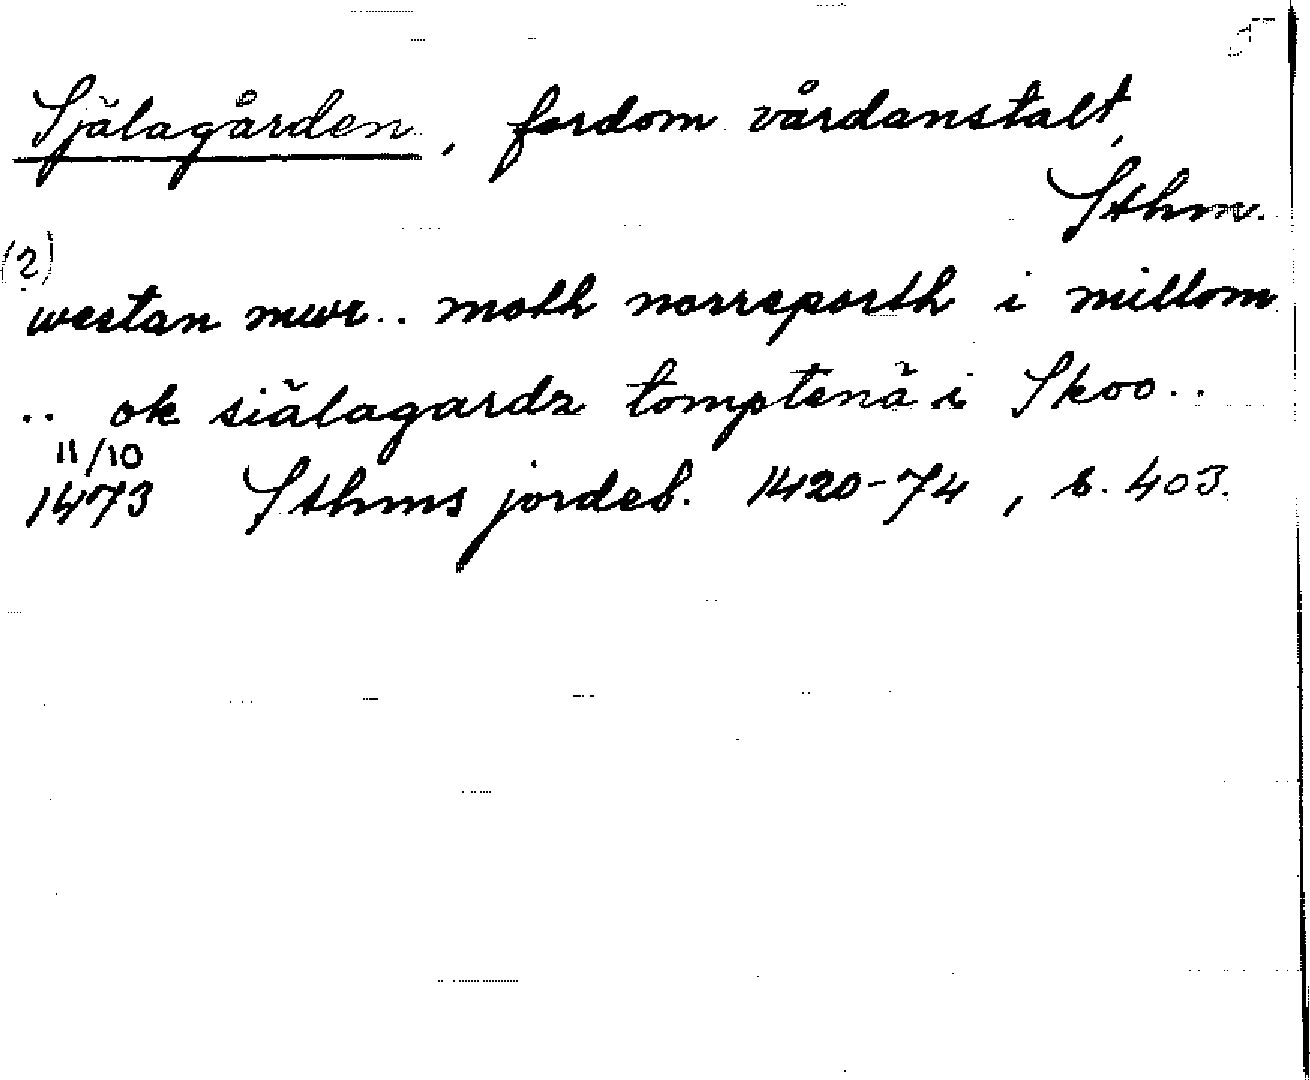 Själagården, fordom vårdanstalt,
Sthm.
(2)
westan mwr.. moth norreporth i millom
.. ok siälagardz tomptenä i Skoo..
11/10
1473 Sthms jordeb. 1420-74, s. 403.